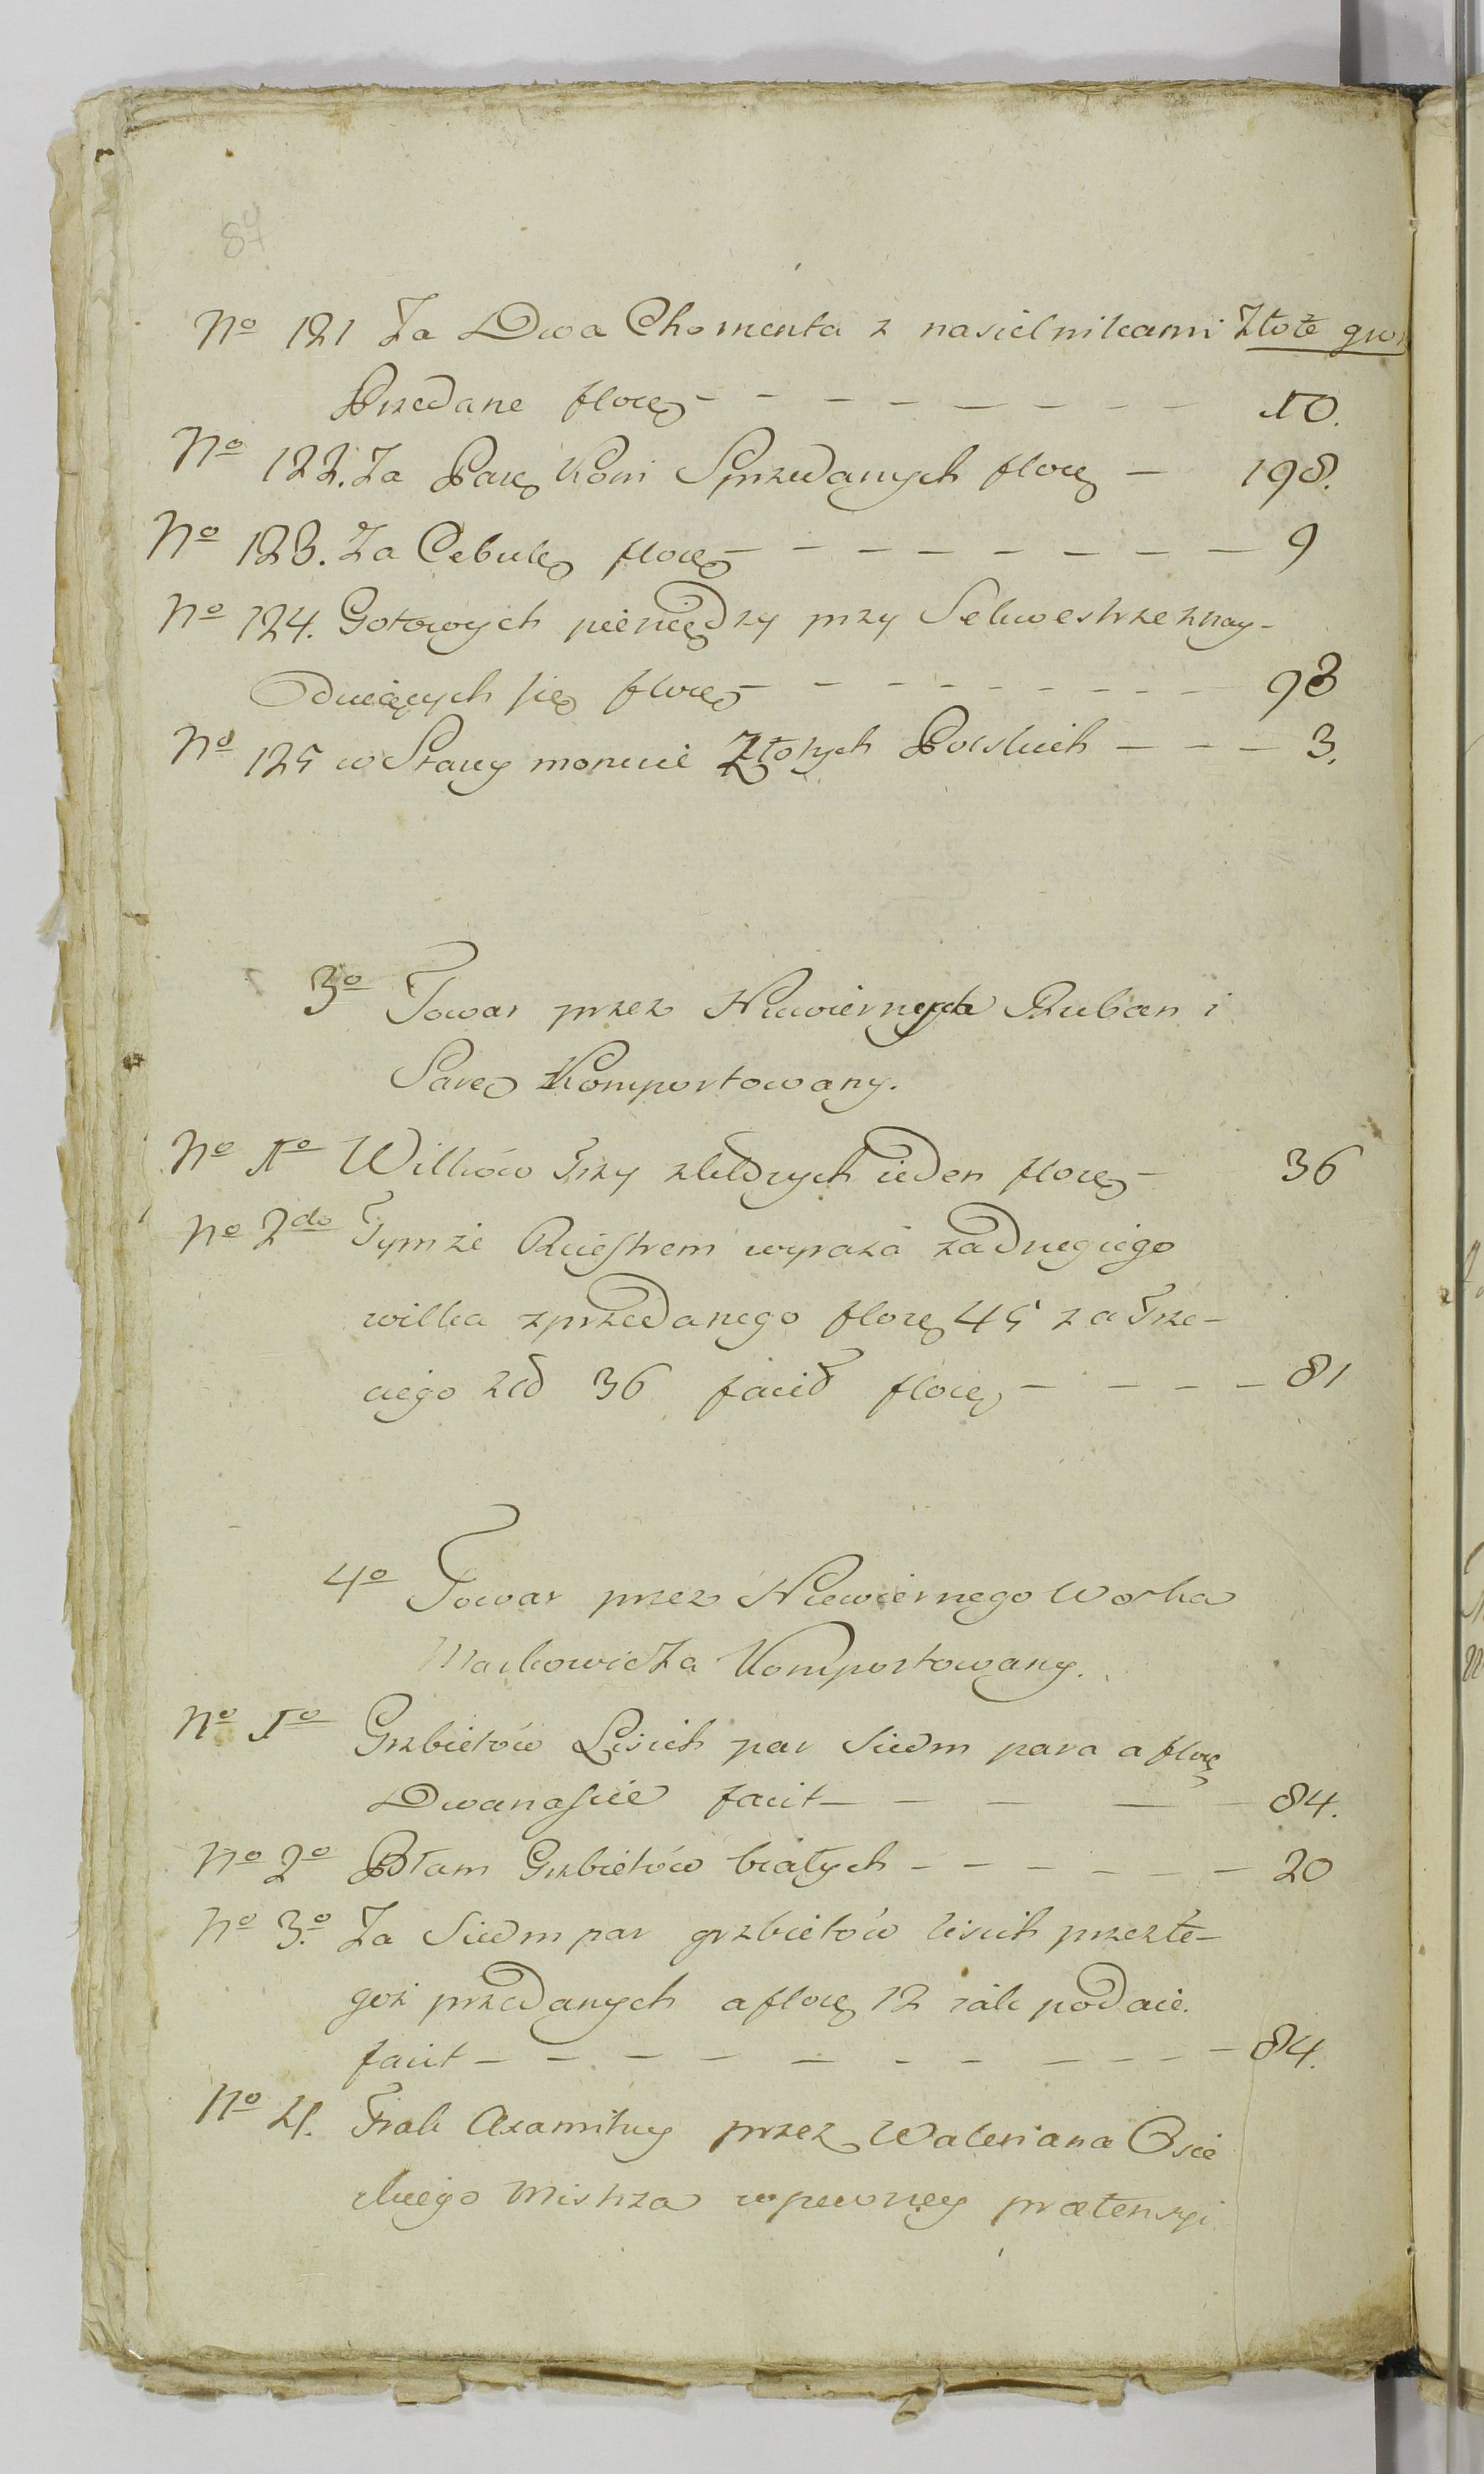 84
No 121 Za Dwa Chomenta z nasielnikami Złote gro
Przedane florę – – – – – – – – 10.
No 122. Za Parę Koni Sprzedanych florę – 198.
No 123. Za Cebulę florę – – – – – – – – – 9
No 124. Gotowych pieniędzy przy Selwestrze znay-
Duiących się florę – – – – – – – – – 93
No 125 w Stary monecie Złotych Polskich – – – 3.
3o Towar przez Niewiernych Ruban i
Sarę Komportowany.
No 1o Wilków Trzy zktórych ieden florę – 36
No 2do Tymże Rziestrem wyraża zadrugiego
wilka zprzedanego florę 45 za Trze-
ciego zło 36 facit florę – – – – 81
4o Towar przez Niewiernego Worka
Markowicza Komportowany.
No 1o Grzbietów Lisich par Siedm para a florę
Dwanaście facit – – – – – 84.
No 2o Błam Grzbietów białych – – – – – – 20
No 3.o Za Siedm par grzbietów lisich przezte-
goż przedanych a florę 12 iak podaie.
facit – – – – – – – – – – 84.
No 4. Frak Axamitny przez Waleriana Osie
ckiego Mistrza wpewney prætensyi